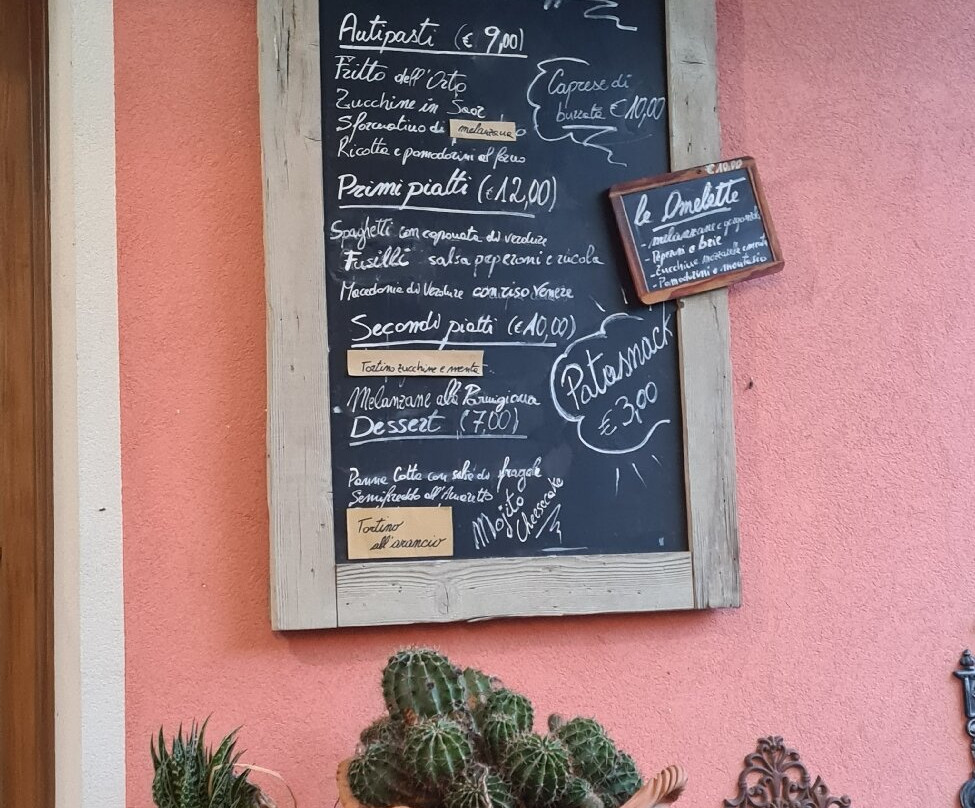 Antipasti (€ 9,00)
Fritto dell'Orto
Zucchine in Saor
Sformatino di melanzane
Ricotta e pomodorini al forno
Caprese di
burrata €10,00
Primi piatti (€12,00)
Spaghetti con caponata di verdure
Fusilli salsa peperoni e rucola
Macedonia di Verdure con riso Venere
Secondi piatti (€10,00)
Tortino zucchine e menta
Melanzane alla Parmigiana
Dessert (7,00)
Panna Cotta con salsa di fragole
Semifreddo all'Amaretto
Tortino
all'arancio
Mojito
Cheesecake
Patasnack
€ 3,00
€ 10,00
le Omelette
- melanzane e gorgonzola
- Peperoni e brie
- Zucchine mozzarella e menta
- Pomodorini e montasio